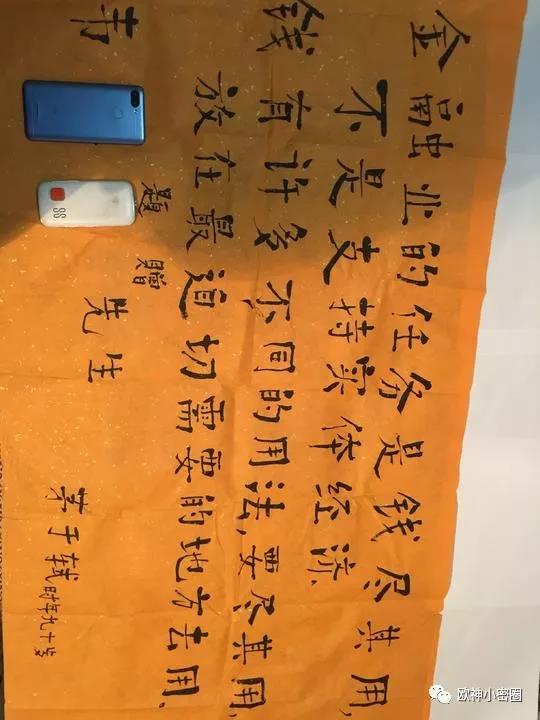 金融业的任务是钱尽其用,
不是支持实体经济
錢有许多不同的用法,要尽其用,
放在最迫切需要的地方去用,
题赠
先生
茅于轼时年九十岁
SS
欧神小密圈